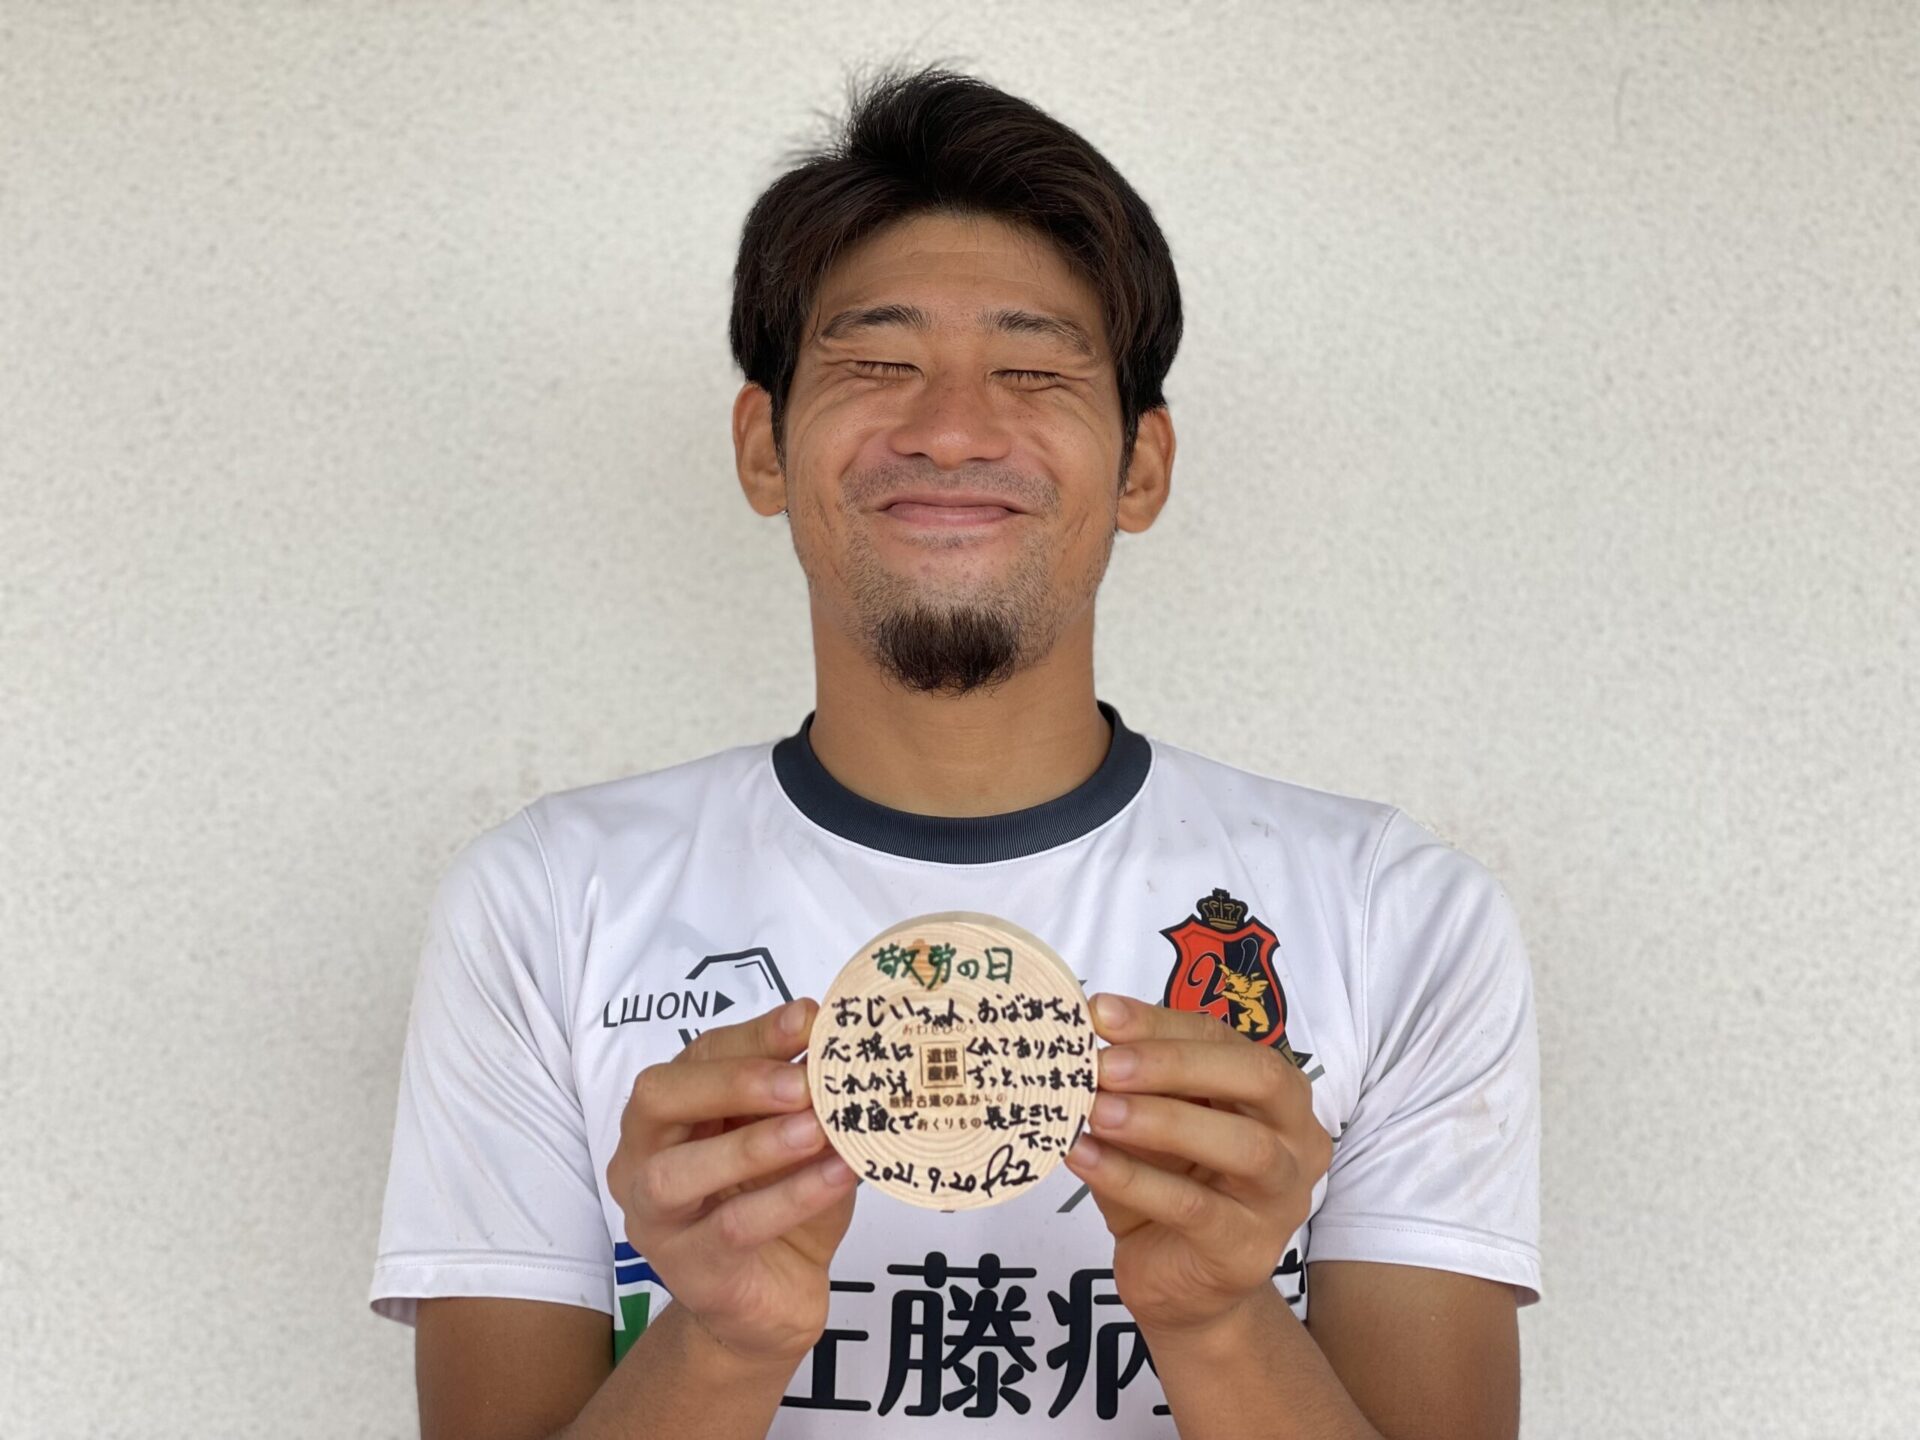 LIШON▶
敬労の日
おじいちゃん、おばあちゃん
おわせひのき
応援してくれてありがとう!
世界遺産
これからもずっと、いつまでも
熊野古道の森からの
健康で 長生きして
おくりもの
下さい!
2021.9.20
佐藤病